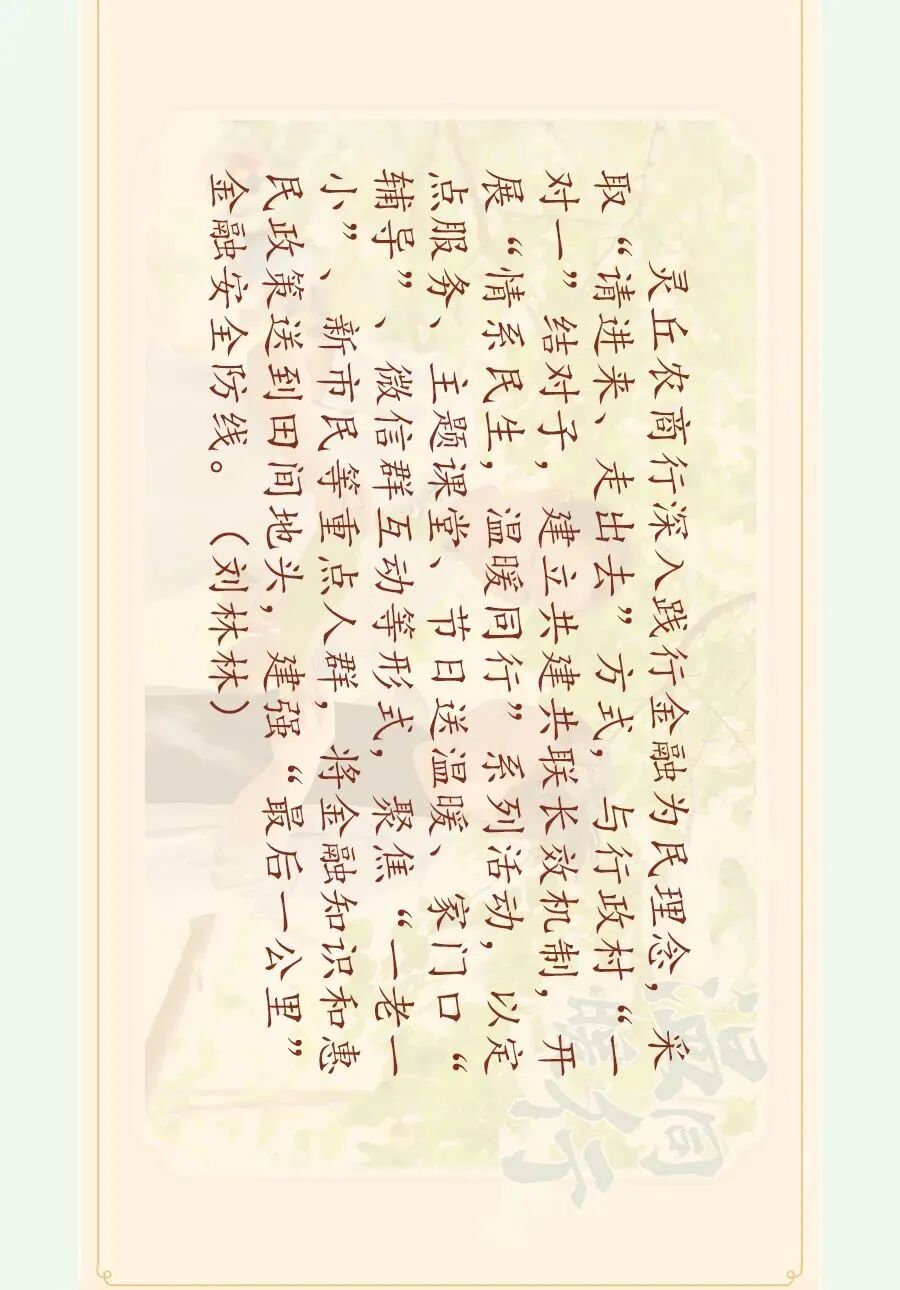 灵丘农商行深入践行金融为民理念，采
取“请进来、走出去”方式，与行政村“一
对一”结对子，建立共建共联长效机制，开
展“情系民生，温暖同行”系列活动，以定
点服务、主题课堂、节日送温暖、家门口“
辅导”、微信群互动等形式，聚焦“一老一
小”、新市民等重点人群，将金融知识和惠
民政策送到田间地头，建强“最后一公里”
金融安全防线。（刘林林）
温暖同行